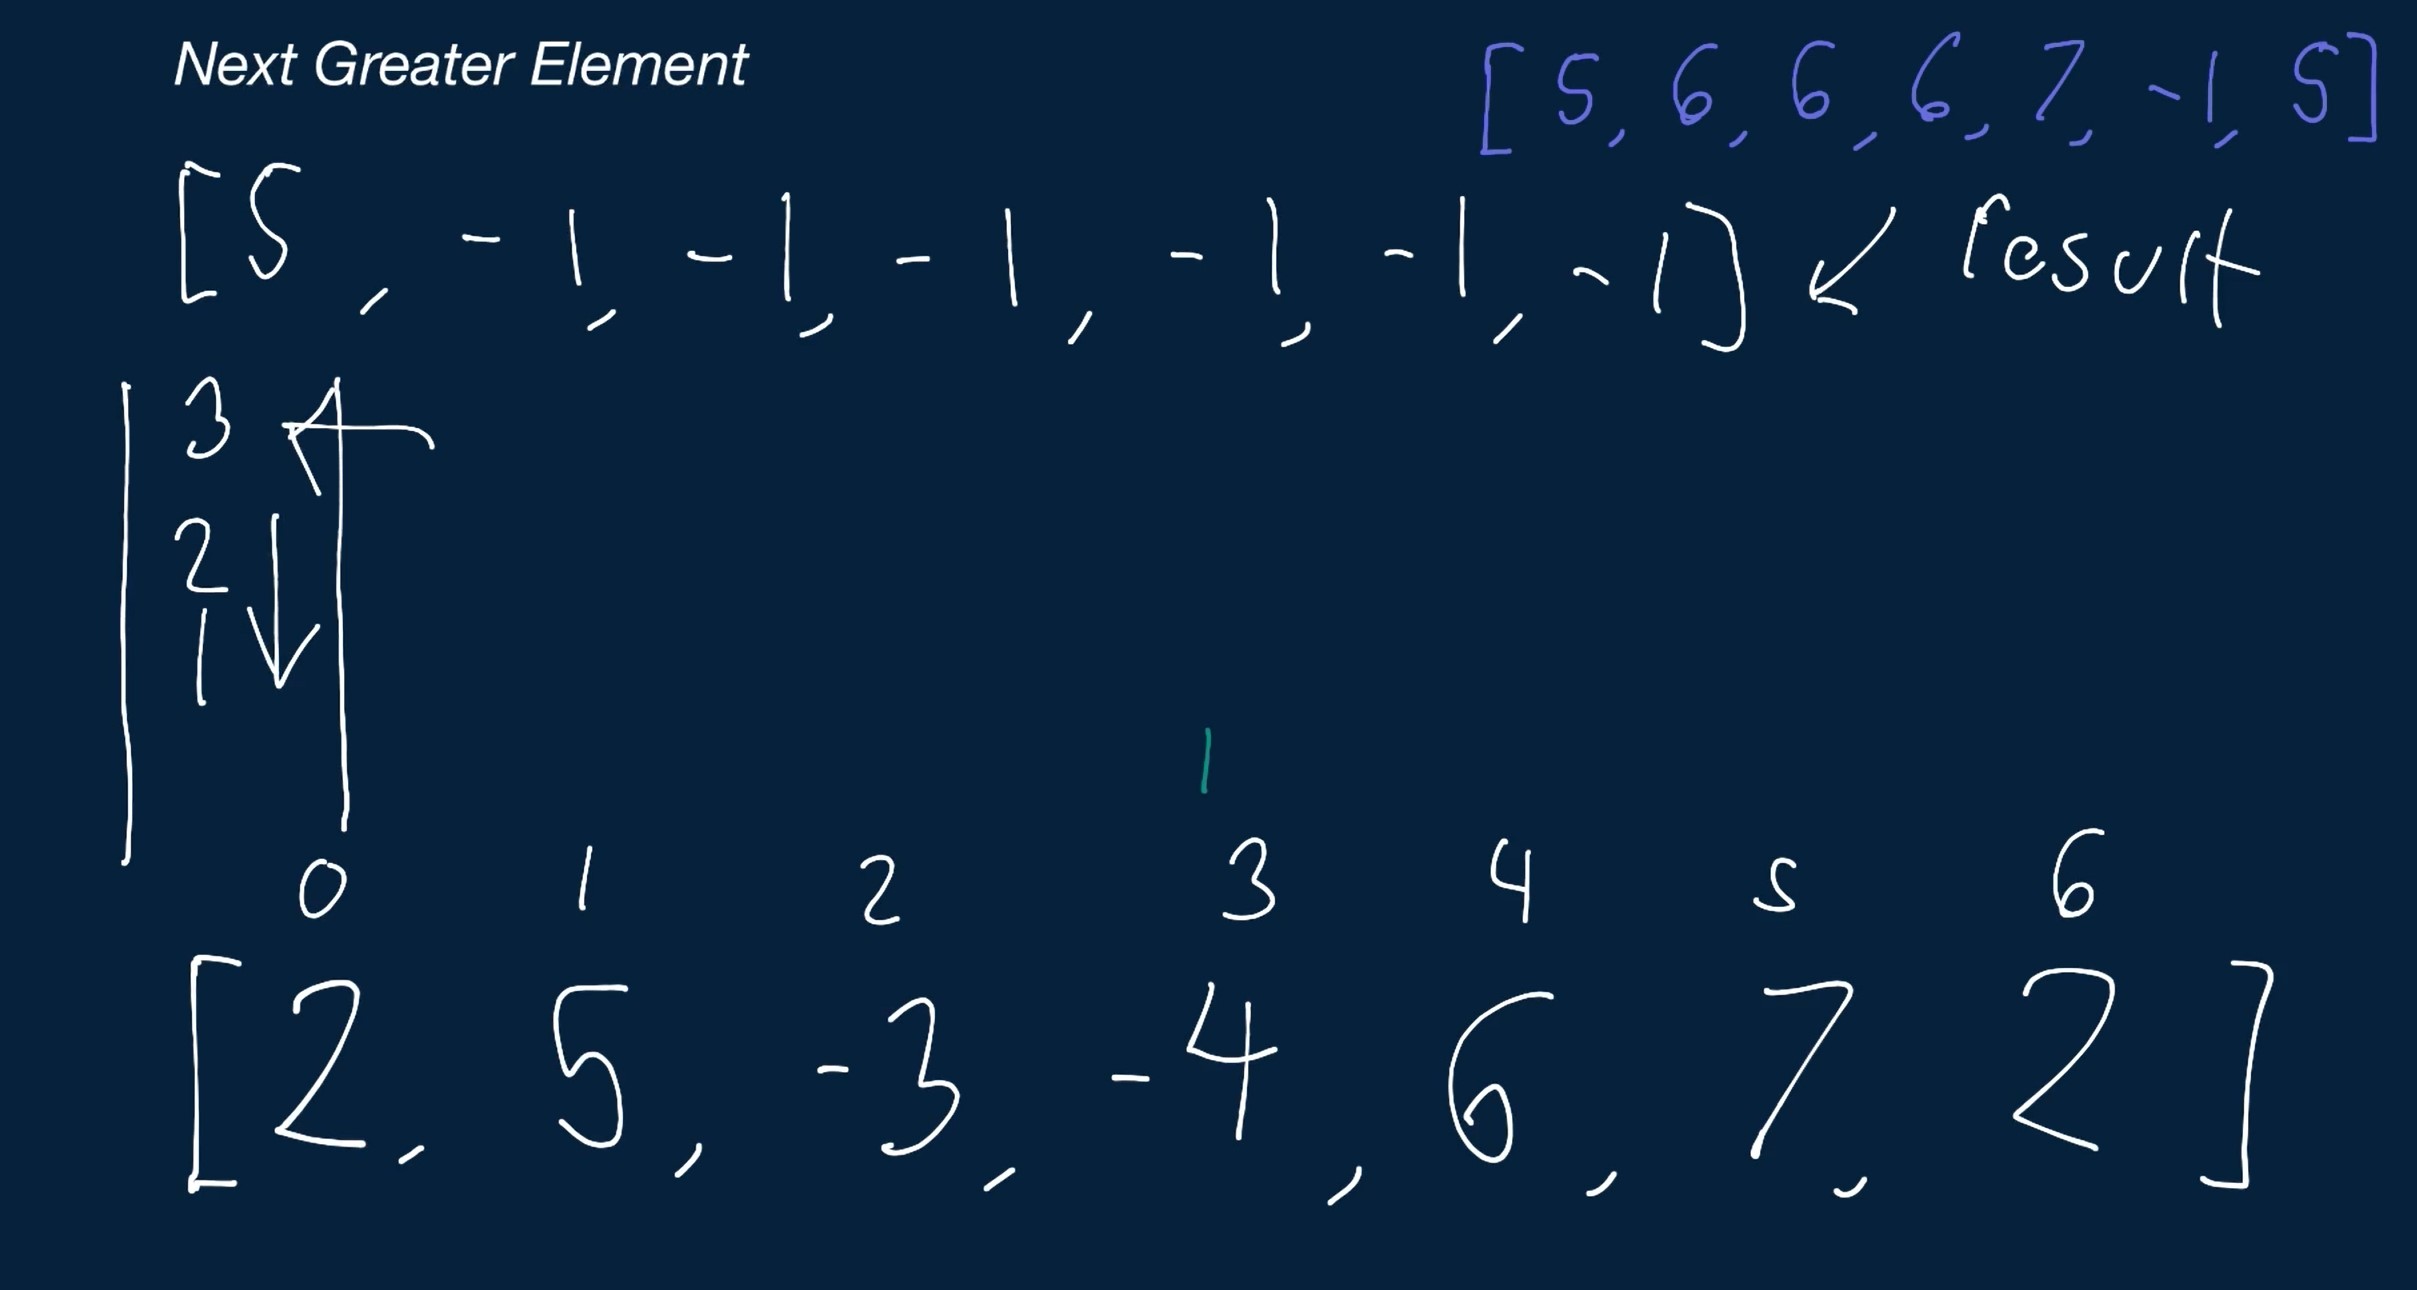 Next Greater Element
[5, 6, 6, 6, 7, -1, 5]
[5, -1, -1, -1, -1, -1, -1] result
3
2
1
0 1 2 3 4 5 6
[2, 5, -3, -4, 6, 7, 2]